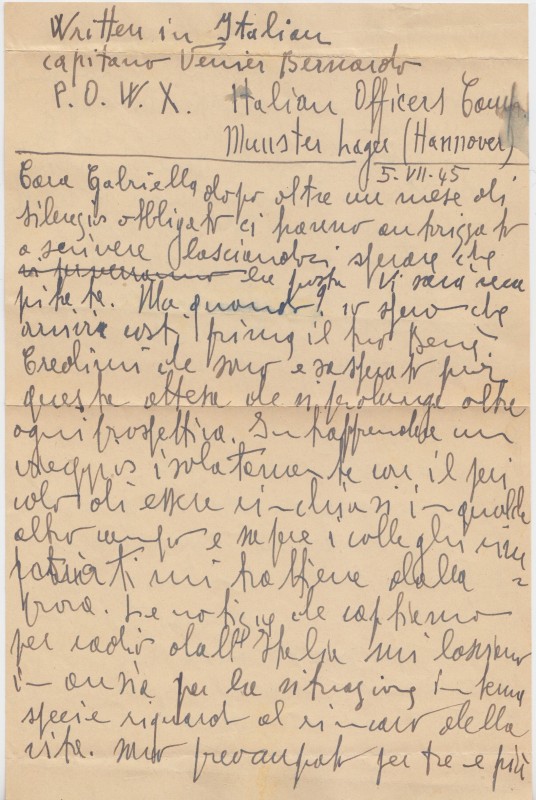 Written in Italian
capitano Venier Bernardo
P. O. W. X. Italian Officers Camp
Munster Lager (Hannover)
5-VII-45
Cara Gabriella, dopo oltre un mese di
silenzio obbligato ci hanno autorizzato
a scrivere lasciandoci sperare che
la posta vi sarà reca
pitata. Ma quando? io spero che
arrivi costì prima il tuo
Credimi che sono esasperato per
questa attesa che si prolunga oltre
ogni prospettiva. Intrapprendere un
viaggio isolatamente con il peri
colo di essere rinchiusi in qualche
altro campo e sapere i colleghi rim
patriati mi trattiene dalla
prova. Le notizie che captiamo
per radio dall'Italia mi lasciano
in ansia per la situazione interna
specie riguardo al rincaro della
vita. Sono preoccupato per te e più